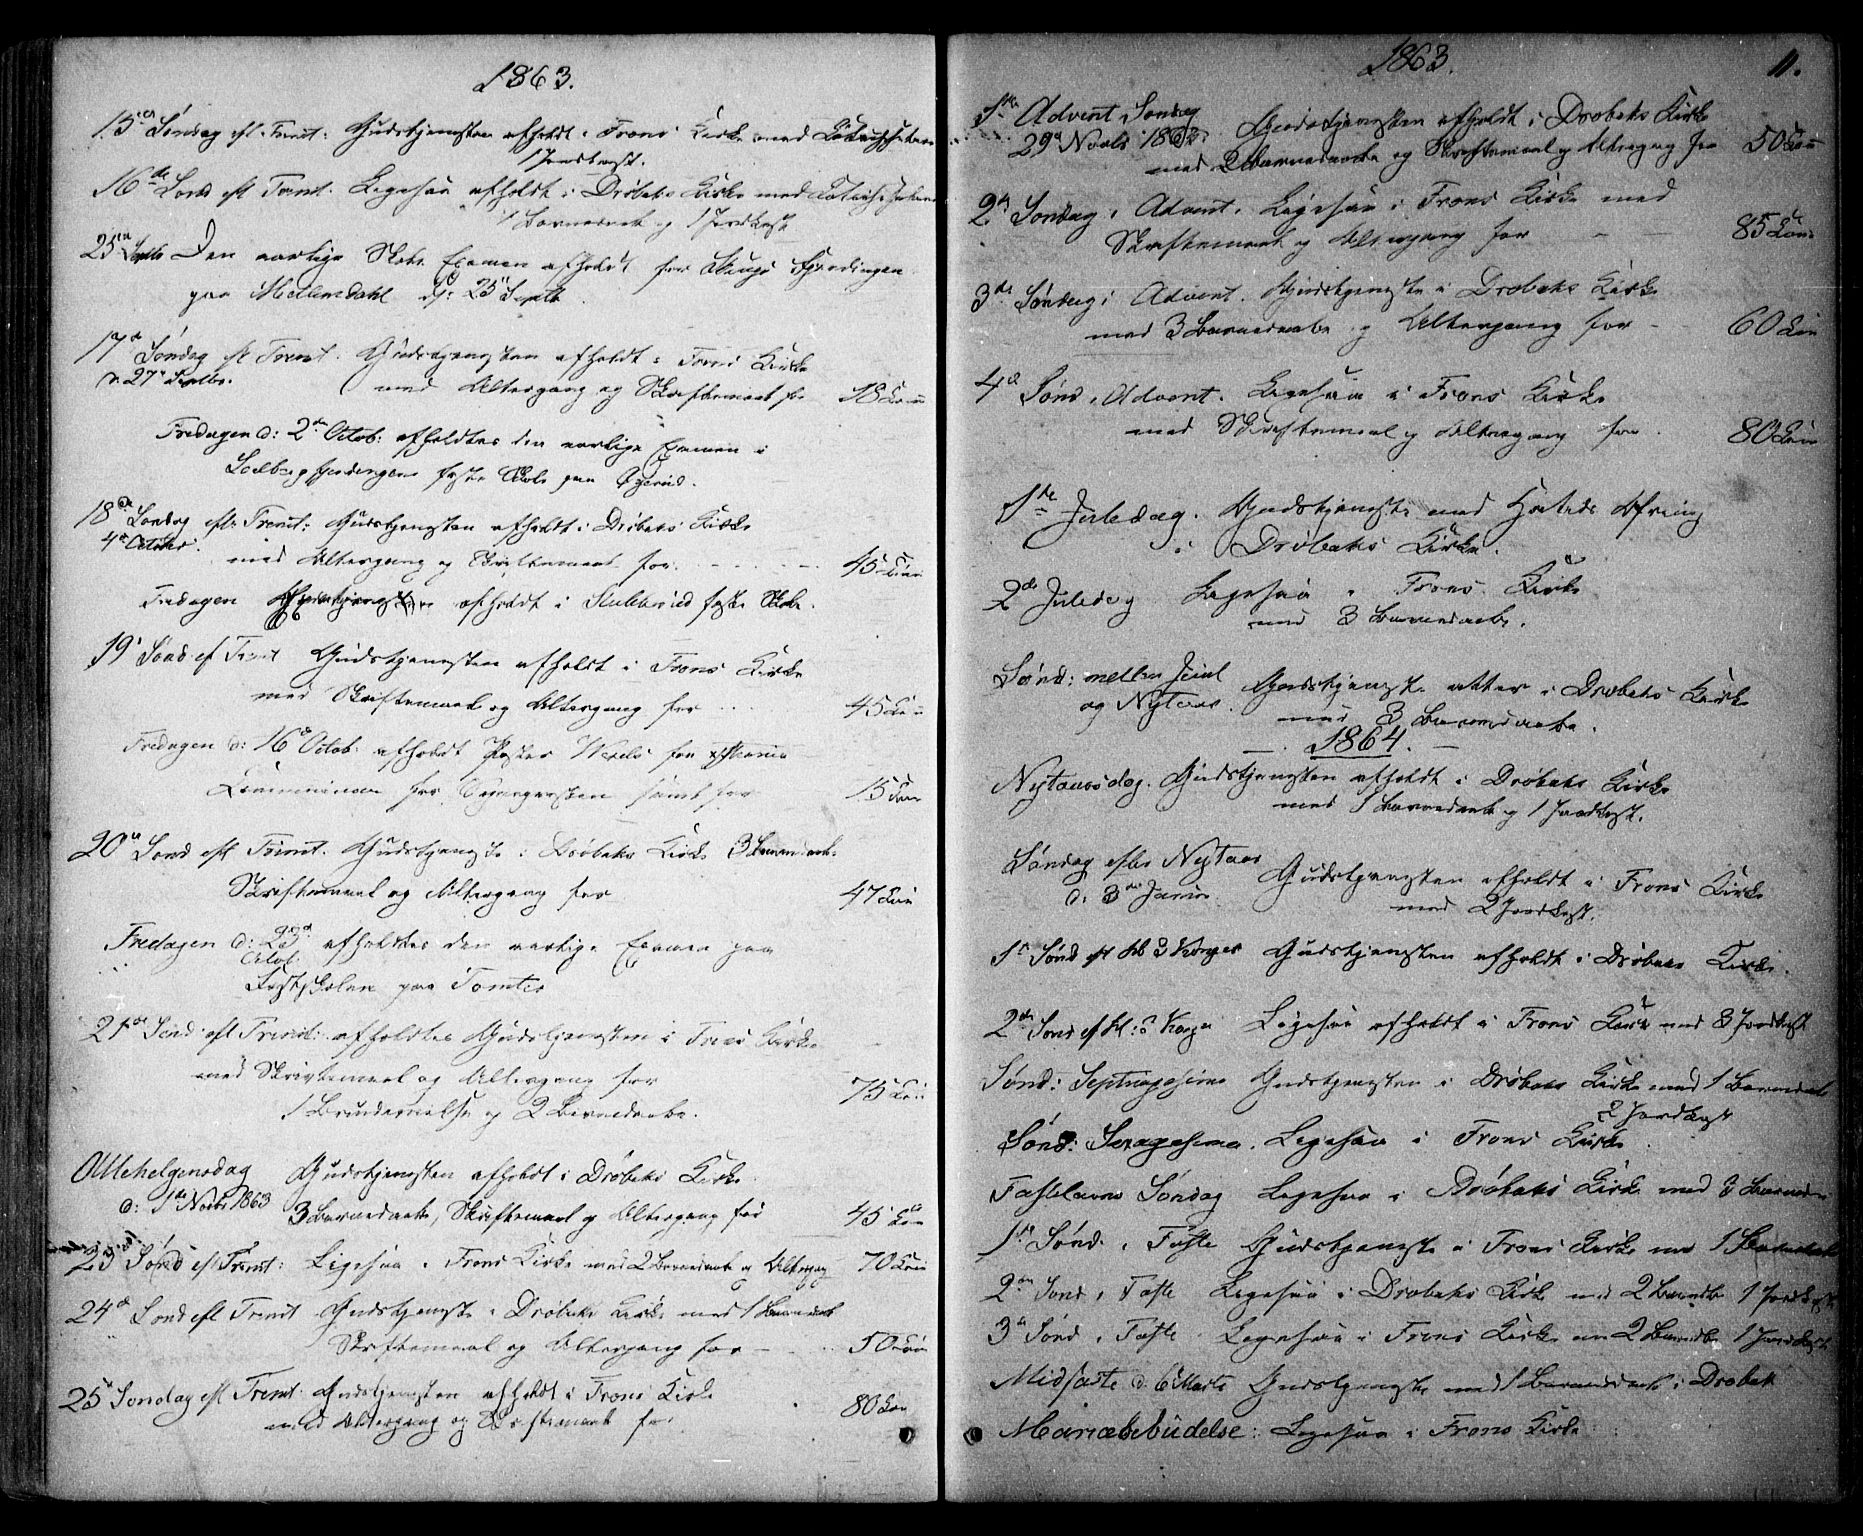 1863.
15de Søndag eft. Trenit: Gudstjenesten afholdt i Frons Kirke med
1 Jordkast.
16de Sønd eft Trenit. Ligesaa afholdt i Drøbaks Kirke med
1 Barnedaab og 1 Jordkast
25de Septb Den aarlige Skole Examen afholdt for Skougs Fjerdingen
paa Mellemdahl d: 25de Septb
17de Søndag eft Trenit. Gudstjenesten afholdt i Frons Kirke
d 27de Septbr. med Altergang og Skriftemaal for 18
Fredagen d: 2den Octob: afholdtes den aarlige Examen i
faste Skole paa
18de Søndag eft: Trenit: Gudstjenesten afholdt i Drøbaks Kirke
4de October. med Altergang og Skriftemaal for 45
Fredagen afholdt i faste Skole.
19de Sønd. eft Trenit Gudstjenesten afholdt i Frons Kirke
med Skriftemaal og Altergang for 45
Fredagen d: 16de Octob: afholdt Pastor
for samt for 15
20de Sønd eft Trenit. Gudstjeneste i Drøbaks Kirke 3 Barnedaab.
Skriftemaal og Altergang for 47
Fredagen d: 23de afholdtes den aarlige Examen paa
Octob
Fastskolen paa Tomter
21de Sønd. eft Trenit: afholdtes Gudstjenesten i Frons Kirke
med Skriftemaal og Altergang for 75
1 Brudevielse og 2 Barnedaabe.
Allehelgensdag Gudstjenesten afholdt i Drøbaks Kirke
d: 1ste Novbr 1863 3 Barnedaabe, Skriftemaal og Altergang for 45
23de Sønd eft Trenit: Ligesaa i Frons Kirke med 2 Barnedaab og Altergang 70
24de Sønd eft Trenit Gudstjeneste i Drøbaks Kirke med 1 Barnedaab
Skriftemaal og Altergang for 50
25de Søndag eft Trenit. Gudstjenesten afholdt i Frons Kirke
med Altergang og Skriftemaal for 80
1863. 11.
1ste Advent Søndag Gudstjenesten afholdt i Drøbaks Kirke
29de Novbr 1863. med 2 Barnedaabe og Skriftemaal og Altergang for 50
2den Søndag i Advent. Ligesaa i Frons Kirke med
Skriftemaal og Altergang for 85
3die Søndag i Advent. Gudstjeneste i Drøbaks Kirke
med 3 Barnedaabe og Altergang for 60
4de Sønd i Advent. Ligesaa i Frons Kirke
med Skriftemaal og Altergang for 80
1ste Juledag. Gudstjeneste med Høitids Ofring
i Drøbaks Kirke.
2den Juledag Ligesaa i Frons Kirke
med 3 Barnedaabe.
Sønd: mellem Juul Gudstjeneste atter i Drøbaks Kirke
og Nytaar. med 3 Barnedaabe.
1864.
Nytaarsdag. Gudstjenesten afholdt i Drøbaks Kirke
med 1 Barnedaab og 1 Jordkast.
Søndag efter Nytaar Gudstjenesten afholdt i Frons Kirke
d: 3die Januar med 2 Jordkast.
1ste Sønd eft H 3 Konger Gudstjenesten afholdt i Drøbaks Kirke.
2den Sønd eft H: 3 Konger Ligesaa afholdt i Frons Kirke med 3 Jordkast
Sønd: Septuagesima Gudstjenesten i Drøbaks Kirke med 1 Barnedaab
2 Jordkast
Sønd: Sexagesima. Ligesaa i Frons Kirke
Fastelavns Søndag Ligesaa i Drøbaks Kirke med 3 Barnedaab
1ste Sønd. i Faste Gudstjeneste i Frons Kirke med 1 Barnedaab
2den Sønd i Faste Ligesaa i Drøbaks Kirke med 2 Barnedb 1 Jordkast
3die Sønd i Faste Ligesaa i Frons Kirke med 2 Barnedb 1 Jordkast
Midfaste d. 6 Marts Gudstjeneste med 1 Barnedaab i Drøbak
Mariæbebudelse: Ligesaa i Frons Kirke